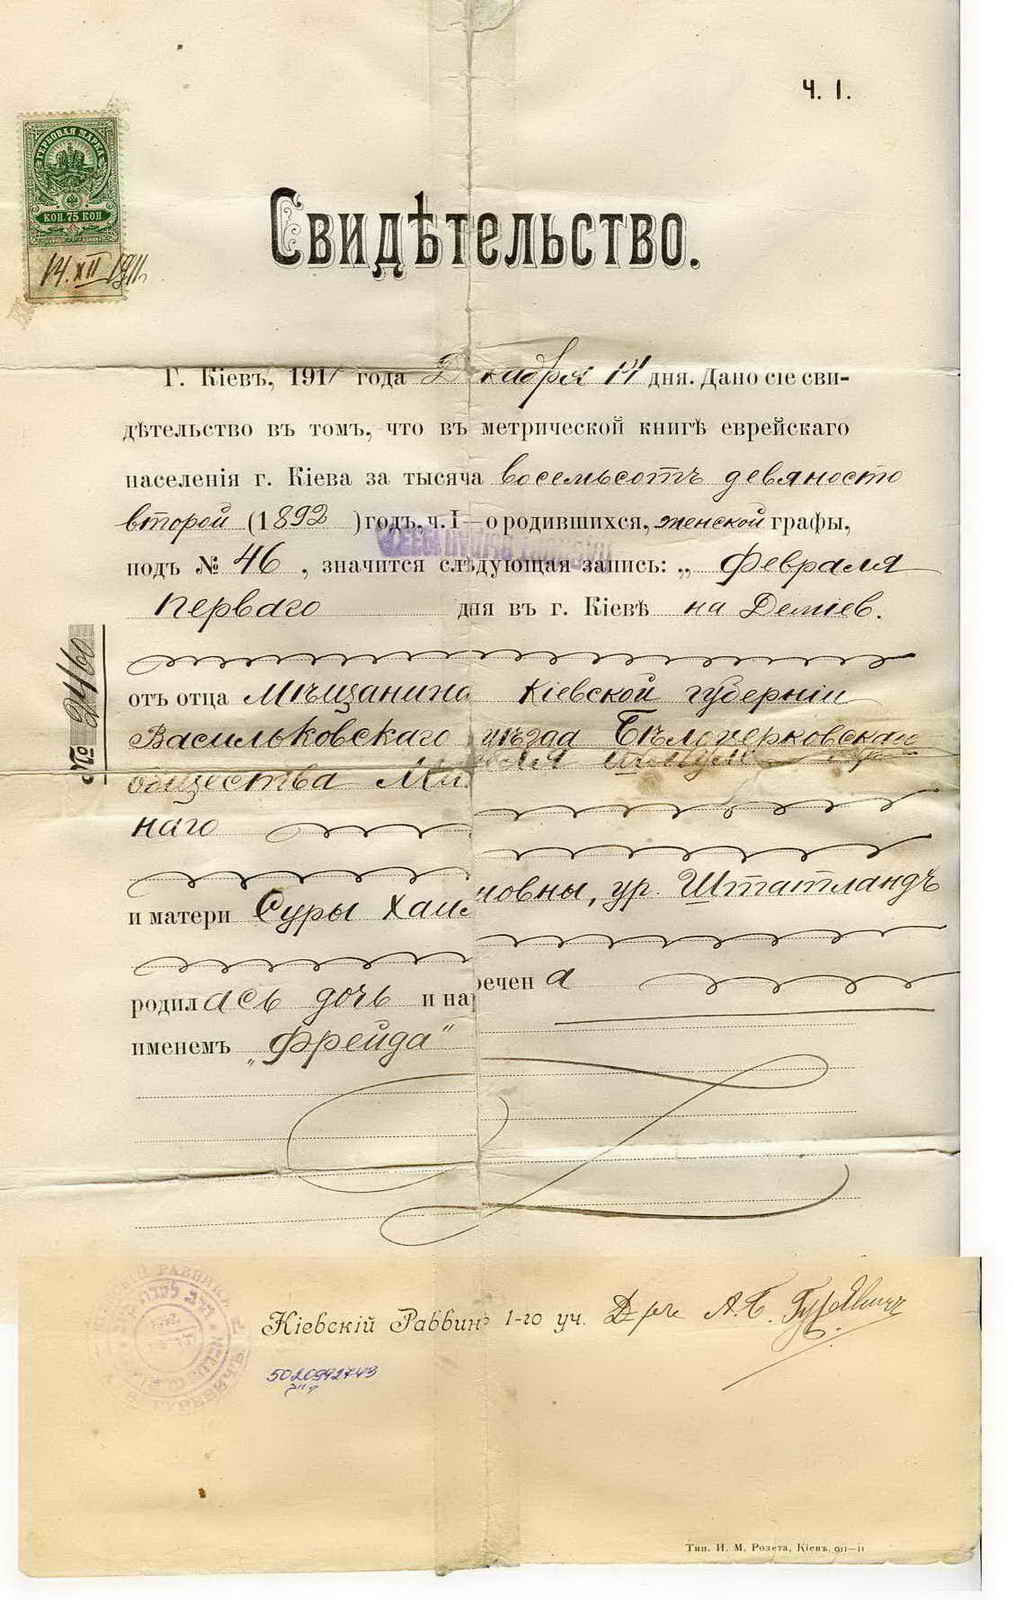 Ч. I.
ГЕРБОВАЯ МАРКА
КОП. 75 КОП
14. XII 1911
Свидѣтельство.
Г. Кіевъ, 1911 года Декабря 14 дня. Дано сіе сви-
дѣтельство въ томъ, что въ метрической книгѣ еврейскаго
населенія г. Кіева за тысяча восемьсотъ девяносто
второй (1892 ) годъ, ч. I—о родившихся, женской графы,
подъ № 46 , значится слѣдующая запись: „ Февраля
перваго дня въ г. Кіевѣ на Деміев.
№ 2460
отъ отца Мѣщанина Кіевской губерніи
Васильковскаго уѣзда Бѣлоцерковскаго
общества
наго
и матери Суры , ур. Штатландъ
родилась дочь и наречена
именемъ „Фрейда“
Кіевскій Раввинъ 1-го уч. Д-ръ А. Б. Гуревичъ
5020992743
Тип. И. М. Розета, Кіевъ. 911—11